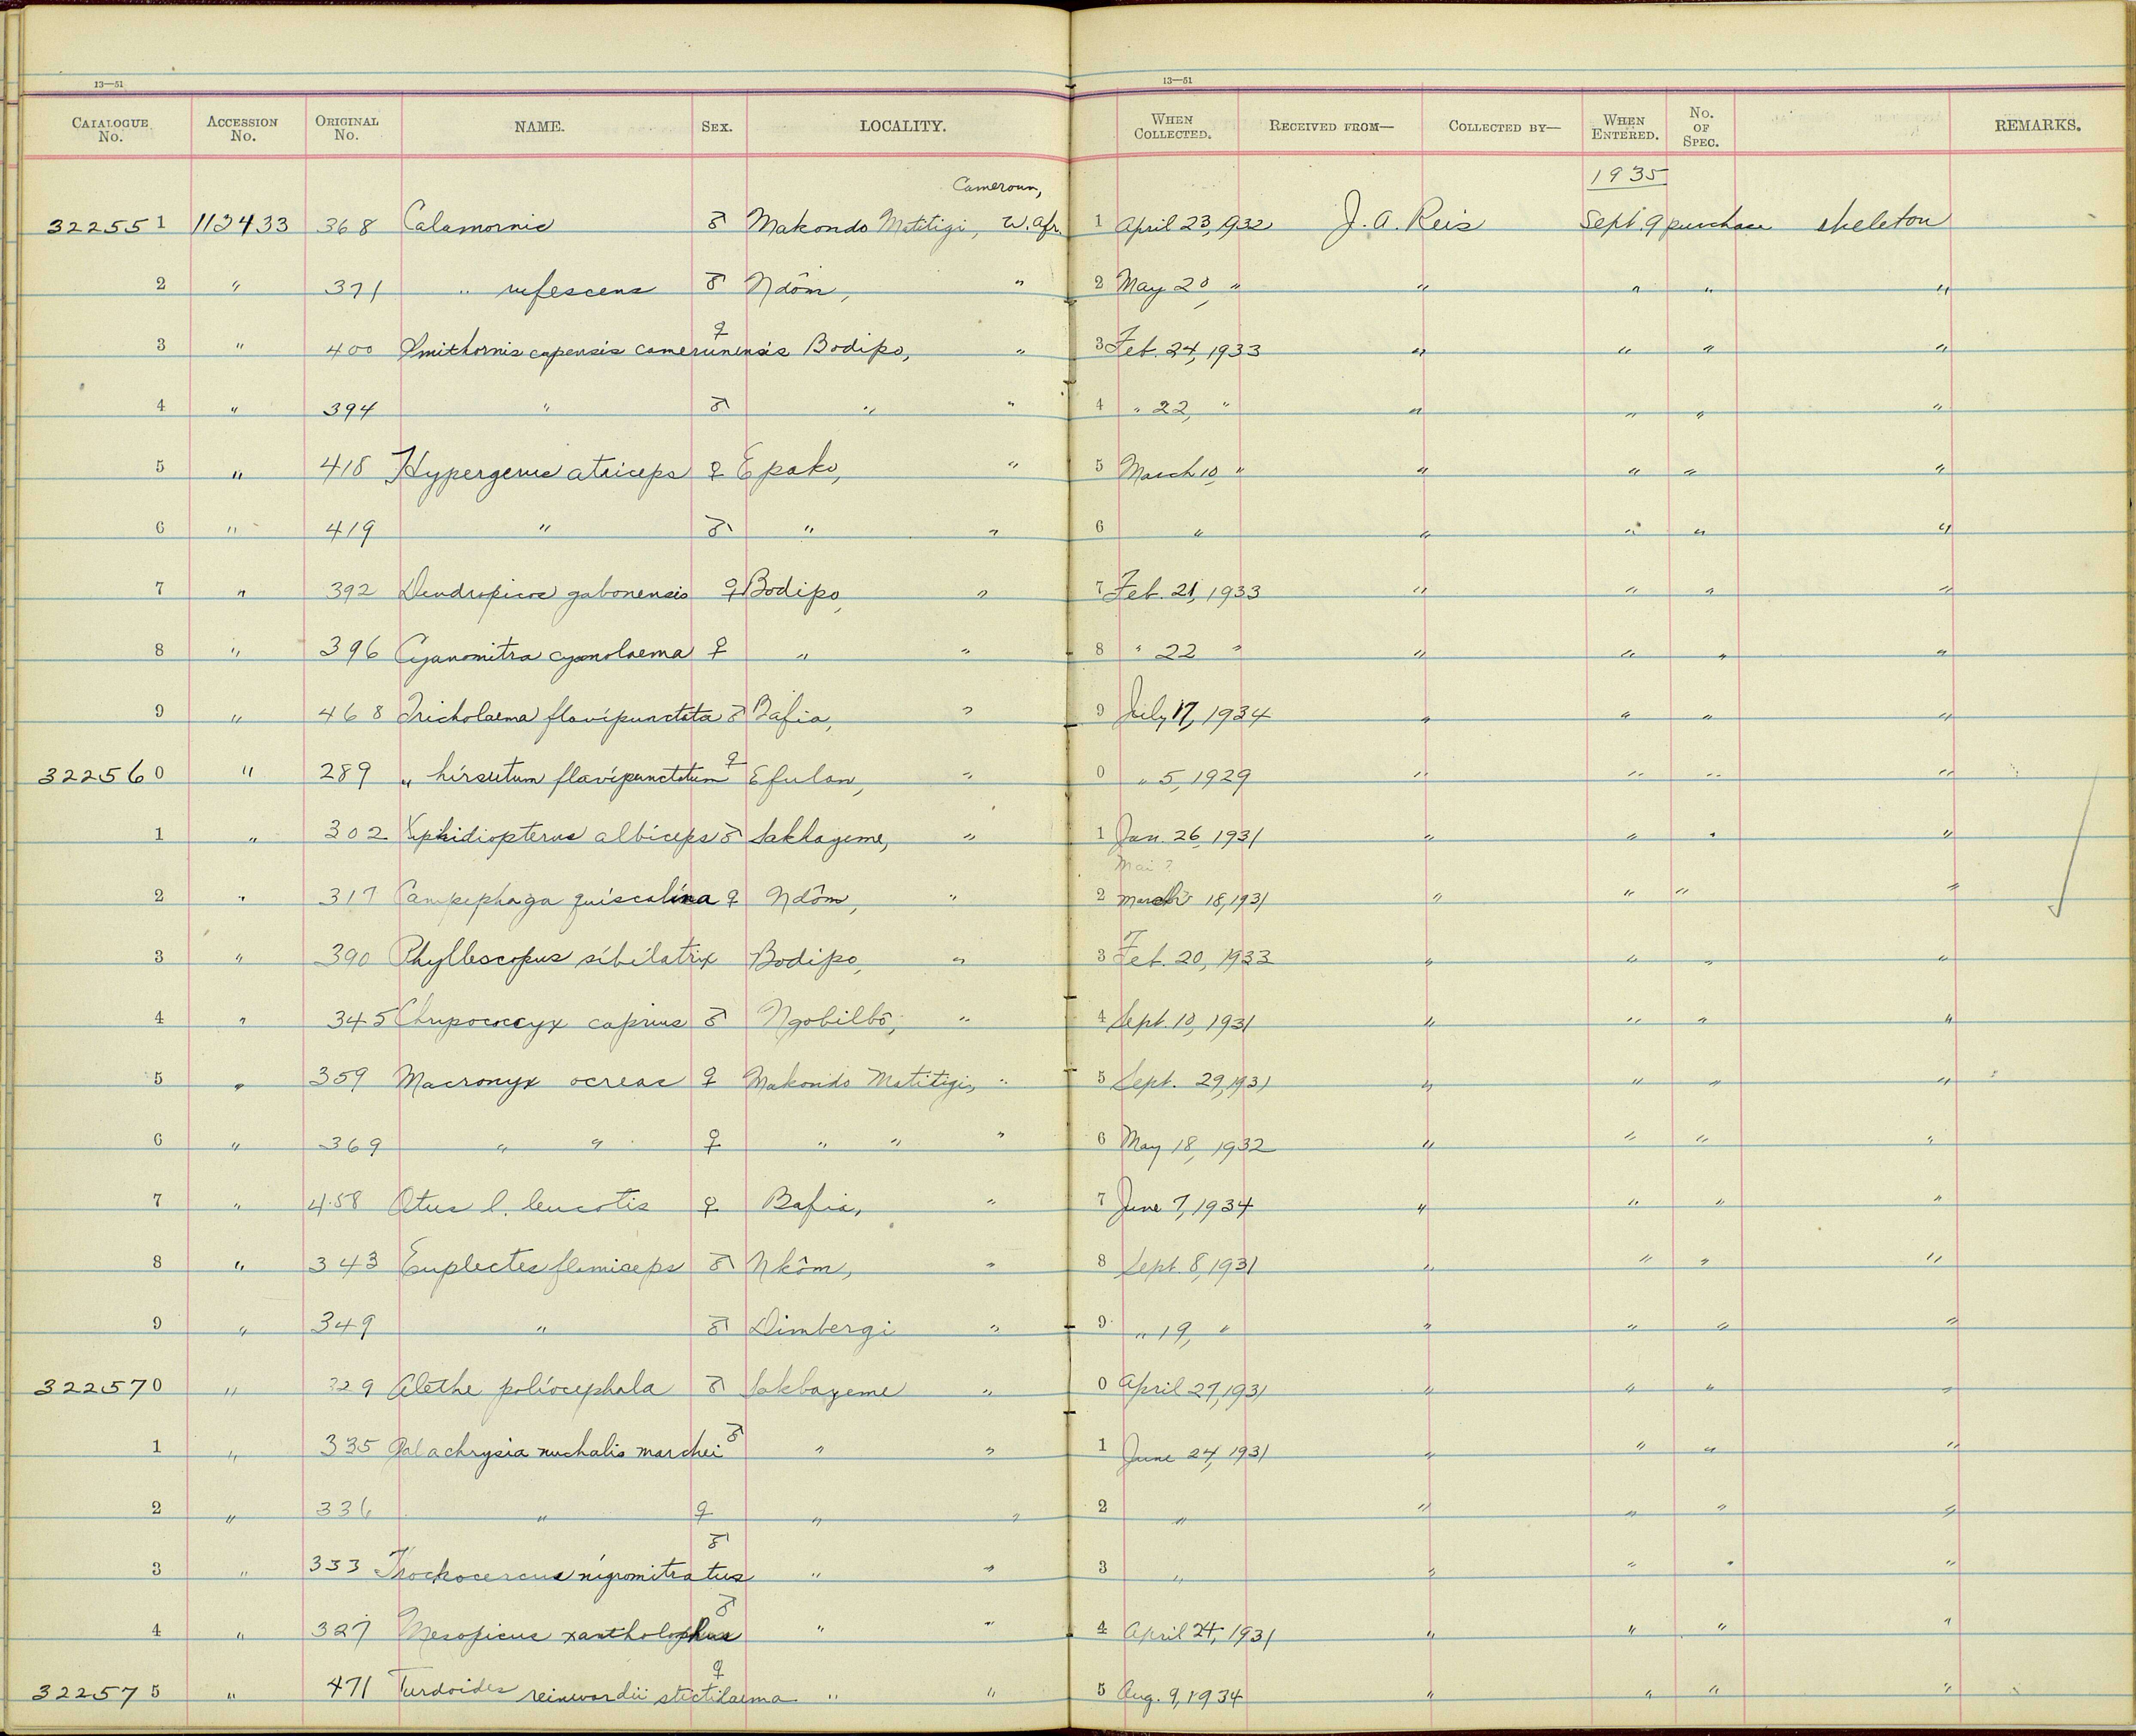 13—51 13—51
CATALOGUE No. ACCESSION No. ORIGINAL No. NAME. SEX. LOCALITY. WHEN COLLECTED. RECEIVED FROM— COLLECTED BY— WHEN ENTERED. No. OF SPEC. REMARKS.
1935
Cameroun,
322551 112433 368 Calamornis ♂ Makondo Matitigi, W. Afr. 1 April 23, 1932 J. A. Reis Sept. 9 purchase skeleton
2 " 371 " rufescens ♂ Ndôm, " 2 May 20 " " " " "
3 " 400 Smithornis capensis camerunensis ♀ Bodipo, " 3 Feb. 24, 1933 " " " "
4 " 394 " ♂ " " 4 " 22, " " " " "
5 " 418 Hypergerus atriceps ♀ Epako, " 5 March 10, " " " " "
6 " 419 " ♂ " " 6 " " " " "
7 " 392 Dendropicos gabonensis ♀ Bodipo, " 7 Feb. 21, 1933 " " " "
8 " 396 Cyanomitra cyanolaema ♀ " " 8 " 22 " " " " "
9 " 468 Tricholaema flavipunctata ♂ Bafia, " 9 July 17, 1934 " " " "
322560 " 289 " hirsutum flavipunctatum ♀ Efulan, " 0 " 5, 1929 " " " "
1 " 302 Xiphidiopterus albiceps ♂ Sakbayeme, " 1 Jan. 26, 1931 " " " "
Mai ?
2 " 317 Campephaga quiscalina ♀ Ndôm, " 2 March 18, 1931 " " " "
3 " 390 Phylloscopus sibilatrix Bodipo, " 3 Feb. 20, 1933 " " " "
4 " 345 Chrysococcyx caprius ♂ Ngobilbô, " 4 Sept. 10, 1931 " " " "
5 " 359 Macronyx croceus ♀ Makondo Matitigi, " 5 Sept. 29, 1931 " " " "
6 " 369 " " ♀ " " " 6 May 18, 1932 " " " "
7 " 458 Otus l. leucotis ♀ Bafia, " 7 June 7, 1934 " " " "
8 " 343 Euplectes flamiceps ♂ Nkôm, " 8 Sept. 8, 1931 " " " "
9 " 349 " ♂ Dimbergi " 9 " 19, " " " " "
322570 " 329 Alethe poliocephala ♂ Sakbayeme " 0 April 27, 1931 " " " "
1 " 335 Galachrysia nuchalis marchei ♂ " " 1 June 24, 1931 " " " "
2 " 336 " ♀ " " 2 " " " " "
3 " 333 Trochocercus nigromitratus ♂ " " 3 " " " " "
4 " 327 Mesopicus xantholophus ♂ " " 4 April 24, 1931 " " " "
322575 " 471 Turdoides reinwardii stictilaema ♀ " " 5 Aug. 9, 1934 " " " "